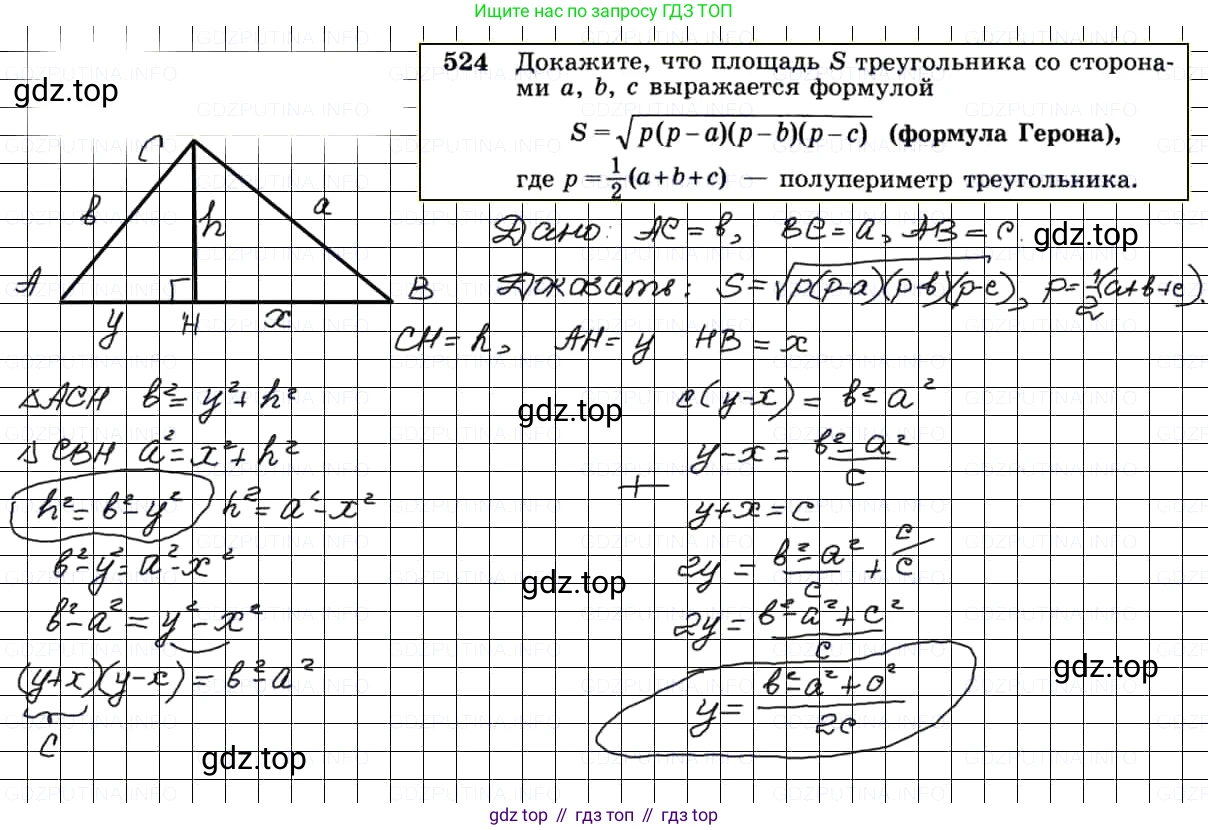 Ищите нас по запросу ГДЗ ТОП
524 Докажите, что площадь S треугольника со сторона-
ми a, b, c выражается формулой
S = √p(p – a)(p – b)(p – c) (формула Герона),
где p = 1/2 (a + b + c) — полупериметр треугольника.
gdz.top
C
в h a
A Г B
y H x
Дано: AC = в, BC = a, AB = c.
gdz.top
Доказать: S = √p(p-a)(p-в)(p-c), p = 1/2 (a+в+c).
CH = h, AH = y HB = x
△ACH в² = y² + h²
△CBH a² = x² + h²
h² = в² - y² h² = a² - x²
в² - y² = a² - x²
в² - a² = y² - x²
(y+x)(y-x) = в² - a²
c
gdz.top
c(y-x) = в² - a²
gdz.top
y-x = в² - a² / c
+
y+x = c
2y = в² - a² / c + c / c
gdz.top
2y = в² - a² + c² / c
y = в² - a² + c² / 2c
gdz.top
gdz top // гдз топ // gdz top
GDZPUTINA.INFO